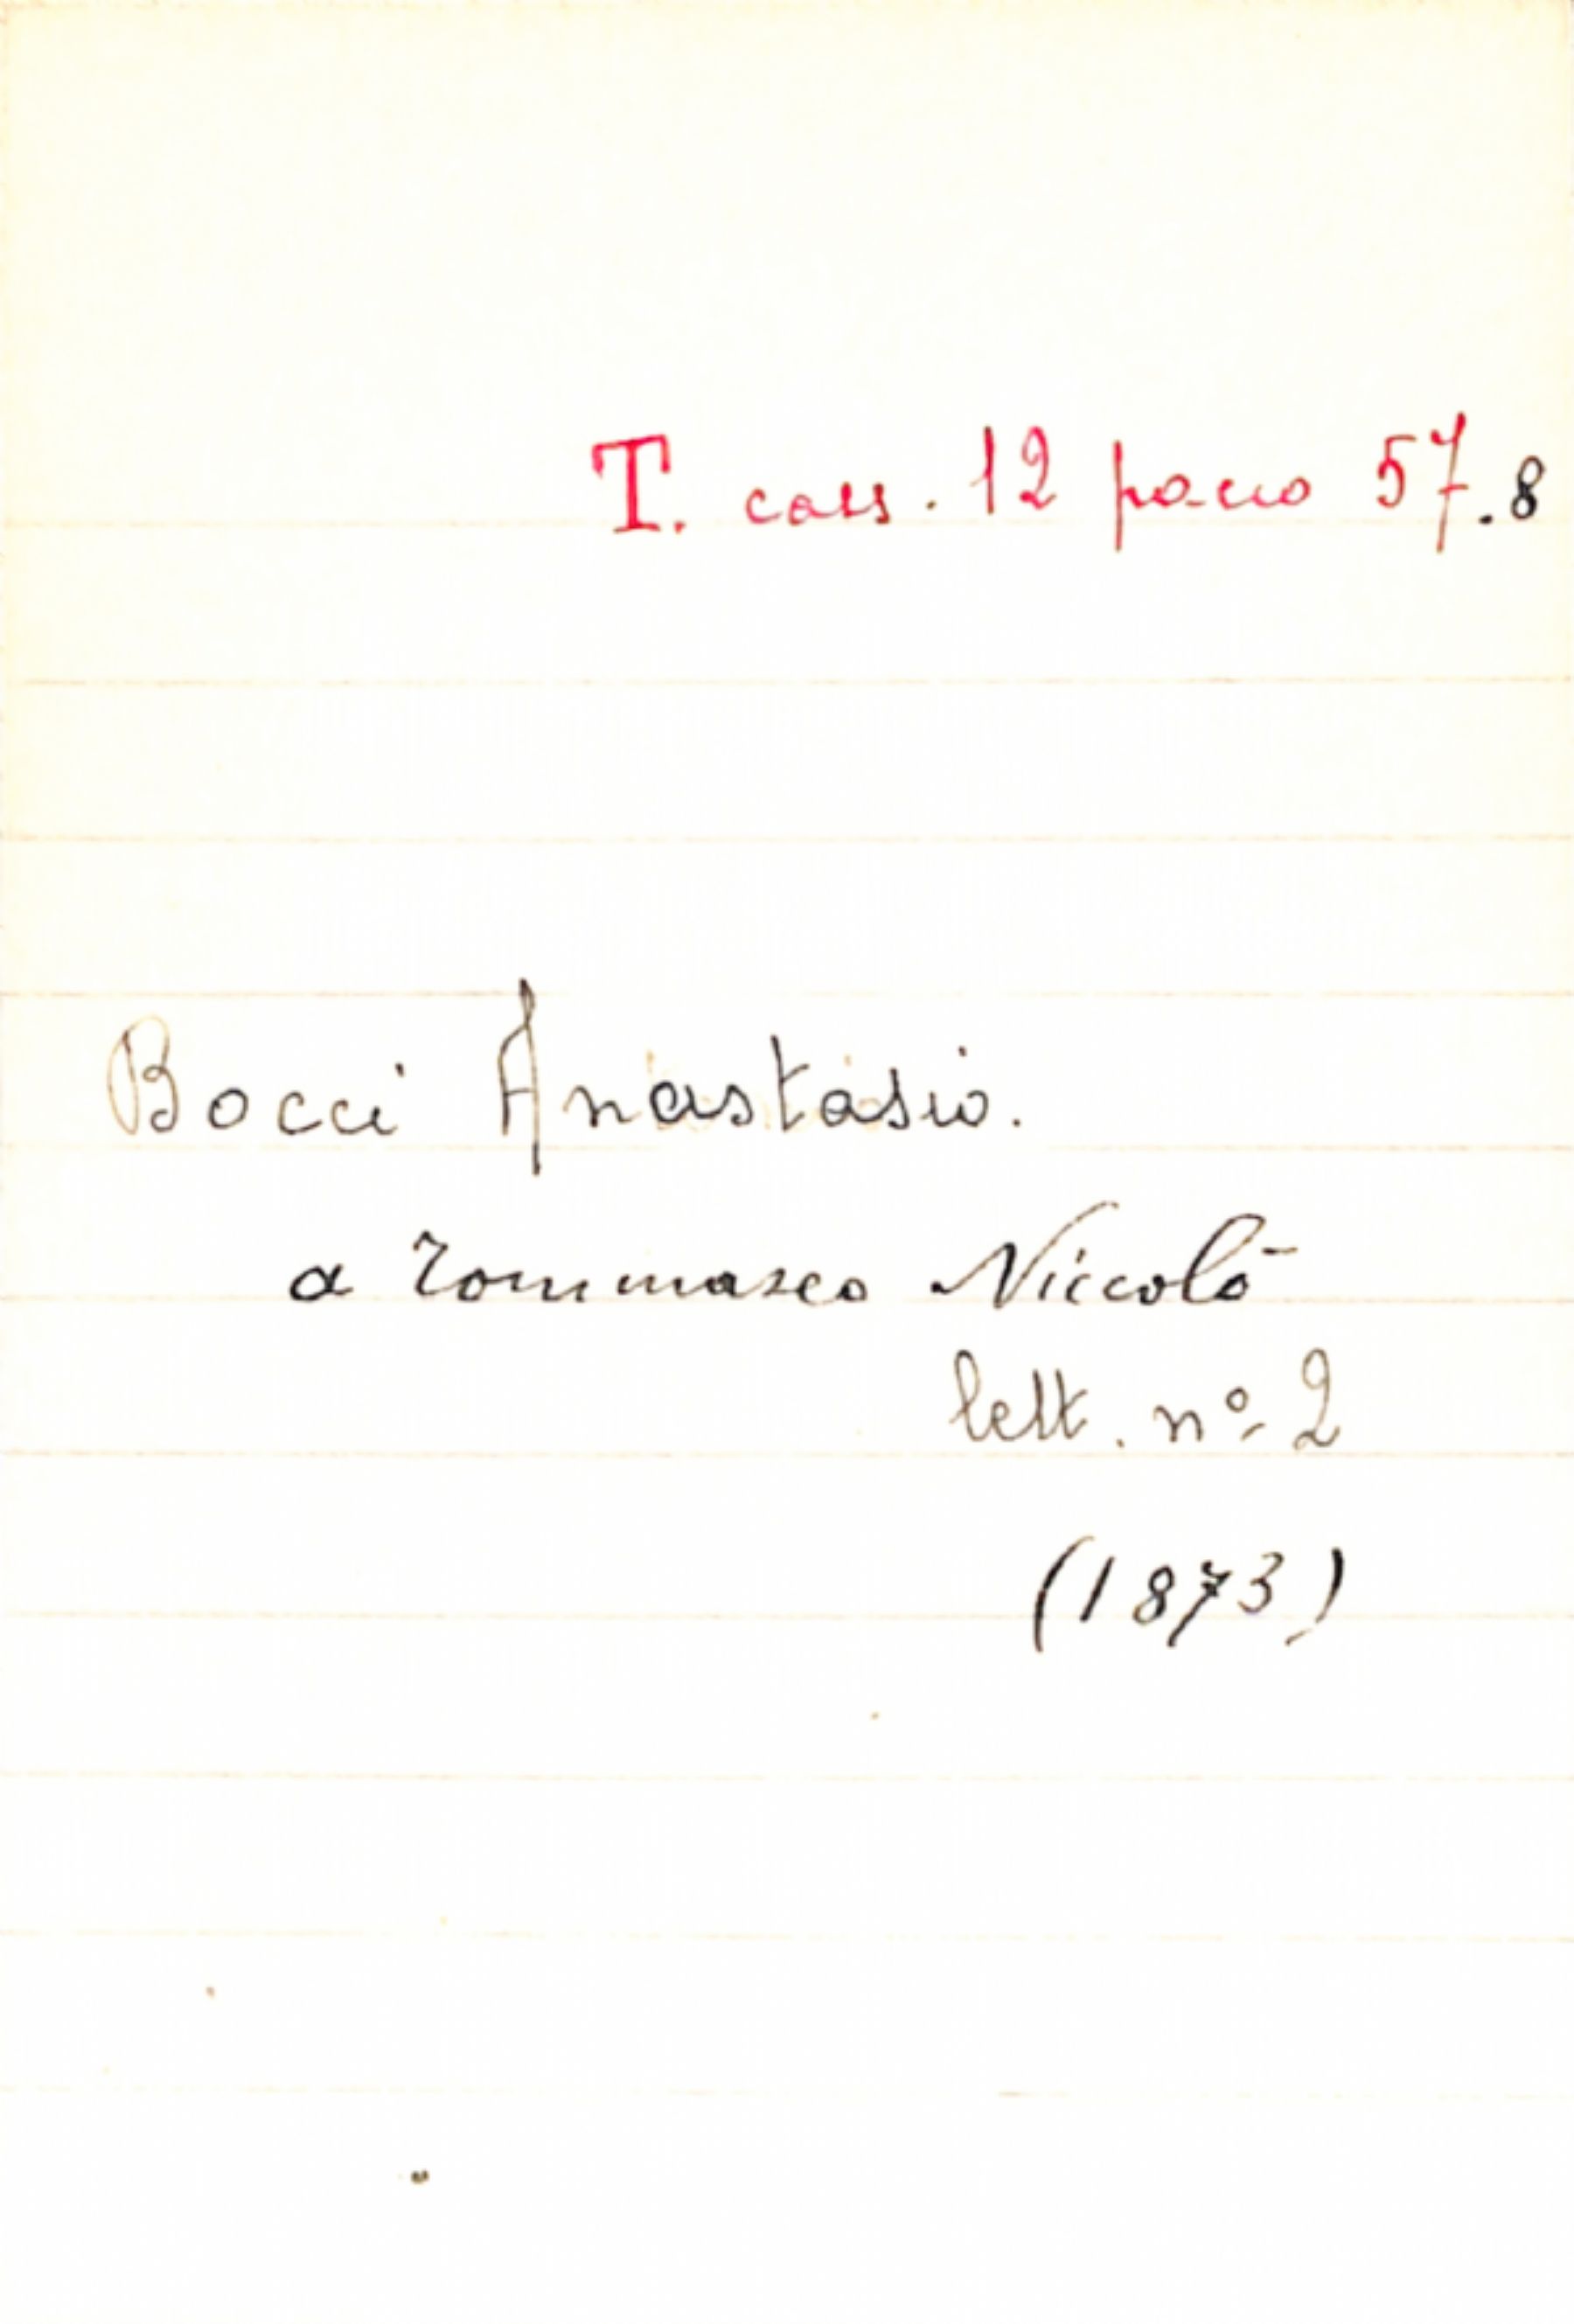 T. cass. 12 pacco 57.8
Bocci Anastasio.
a Tommaseo Niccolò
lett. nº 2
(1873)